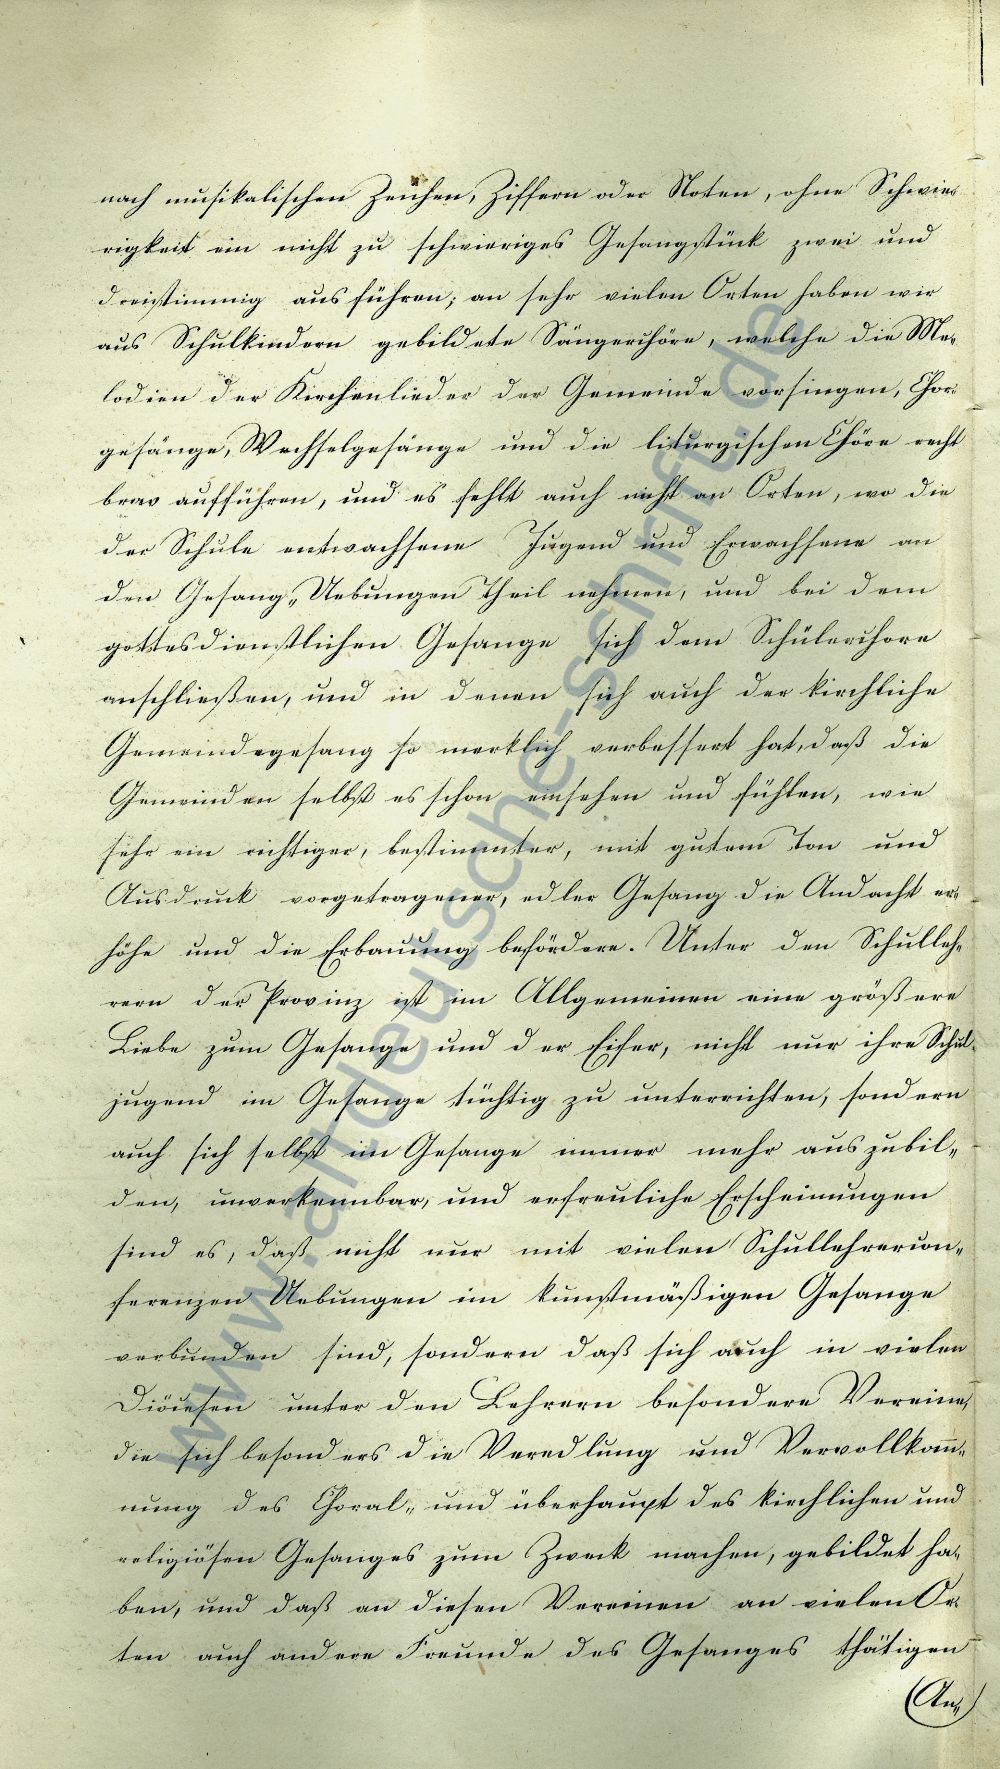 nach musikalischen Zeichen, Ziffern oder Noten, ohne Schwie-
rigkeit ein nicht zu schwieriges Gesangstück zwei und
dreistimmig ausführen; an sehr vielen Orten haben wir
aus Schulkindern gebildete Sängerchöre, welche die Me-
lodien der Kirchenlieder der Gemeinde vorsingen, Chor-
gesänge, Wechselgesänge und die liturgischen Chöre recht
brav aufführen, und es fehlt auch nicht an Orten, wo die
der Schule entwachsene Jugend und Erwachsene an
den Gesang-Uebungen Theil nehmen, und bei dem
gottesdienstlichen Gesange sich dem Schülerchore
anschließen, und in denen sich auch der kirchliche
Gemeindegesang so merklich verbessert hat, daß die
Gemeinden selbst es schon einsehen und fühlen, wie
sehr ein richtiger, bestimmter, mit gutem Ton und
Ausdruck vorgetragener, edler Gesang die Andacht er-
höhe und die Erbauung befördere. Unter den Schulleh-
rern der Provinz ist im Allgemeinen eine größere
Liebe zum Gesange und der Eifer, nicht nur ihre Schul-
jugend im Gesange tüchtig zu unterrichten, sondern
auch sich selbst im Gesange immer mehr auszubil-
den, unverkennbar, und erfreuliche Erscheinungen
sind es, daß nicht nur mit vielen Schullehrercon-
ferenzen Uebungen im kunstmäßigen Gesange
verbunden sind, sondern daß sich auch in vielen
Diöcesen unter den Lehrern besondere Vereine,
die sich besonders die Veredlung und Vervollkom̄-
nung des Choral- und überhaupt des kirchlichen und
religiösen Gesanges zum Zweck machen, gebildet ha-
ben, und daß an diesen Vereinen an vielen Or-
ten auch andere Freunde des Gesanges thätigen
(An-)
www.alldeutsche-schrift.de